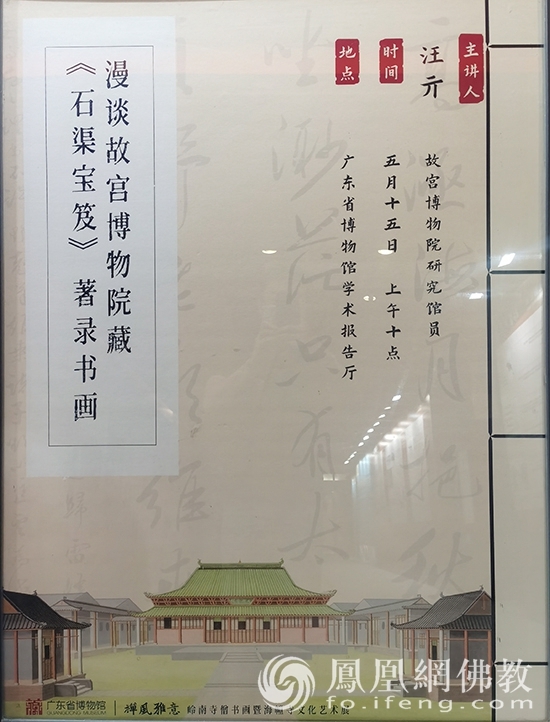 主讲人
汪亓
故宫博物院研究馆员
时间
五月十五日 上午十点
地点
广东省博物馆学术报告厅
漫谈故宫博物院藏
《石渠宝笈》 著录书画
广东省博物馆
GUANGDONG MUSEUM
禅風雅意
岭南寺僧书画暨海幢寺文化艺术展
鳳凰網佛教
fo.ifeng.com